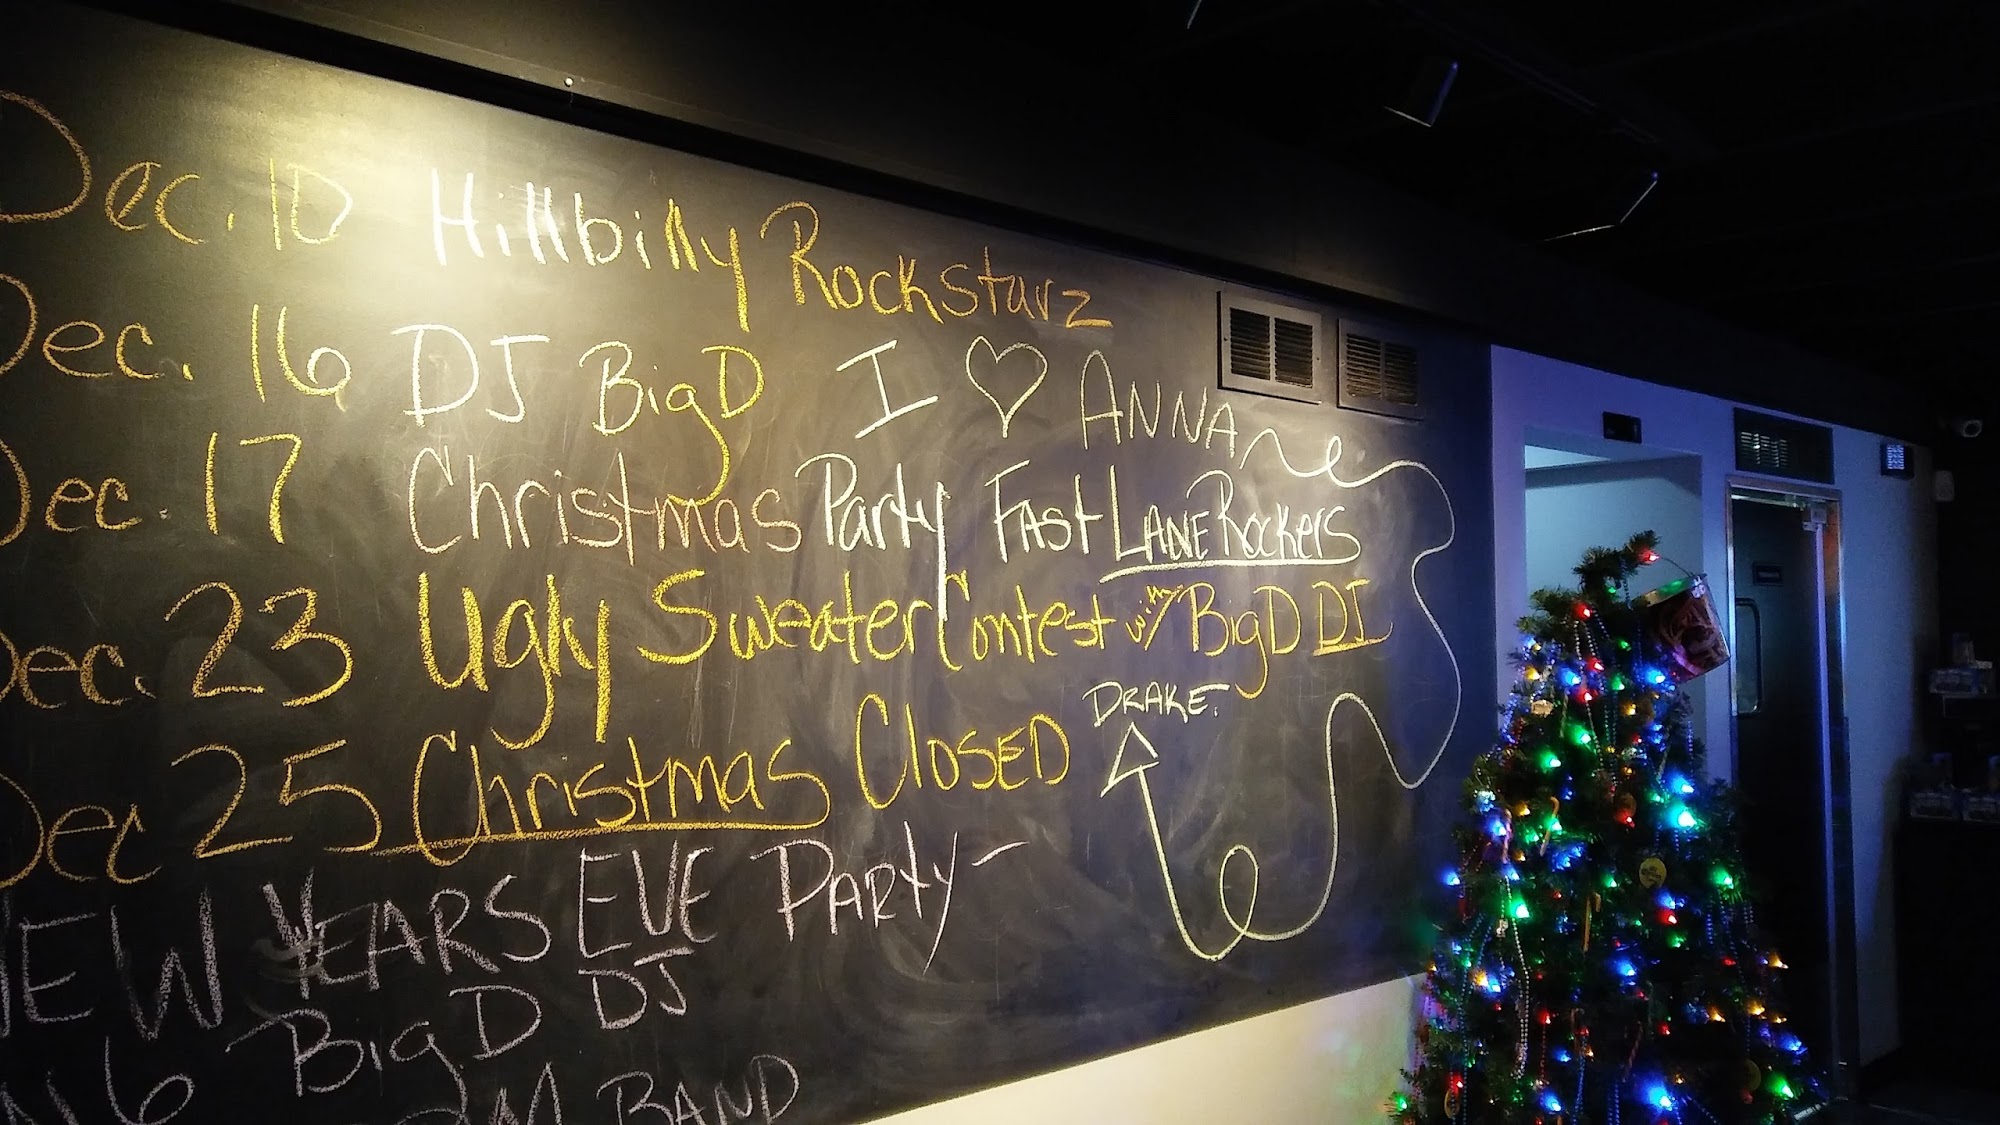 Dec. 10 Hillbilly Rockstarz
Dec. 16 DJ Big D I ♡ ANNA
Dec. 17 Christmas Party FAST LANE Rockers
Dec. 23 Ugly Sweater Contest with Big D DJ
DRAKE.
Dec 25 Christmas Closed
NEW YEARS EVE PARTY-
Big D DJ
6 BAND